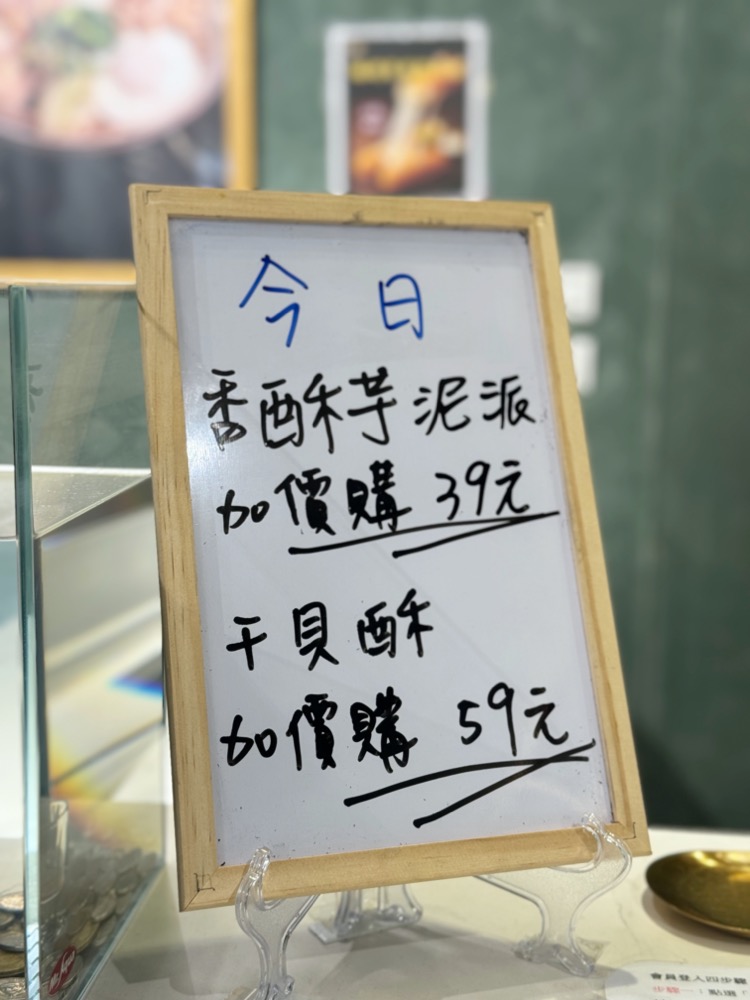 今日
香酥芋泥派
加價購 39元
干貝酥
加價購 59元
會員登入四步驟
步驟一：點選「